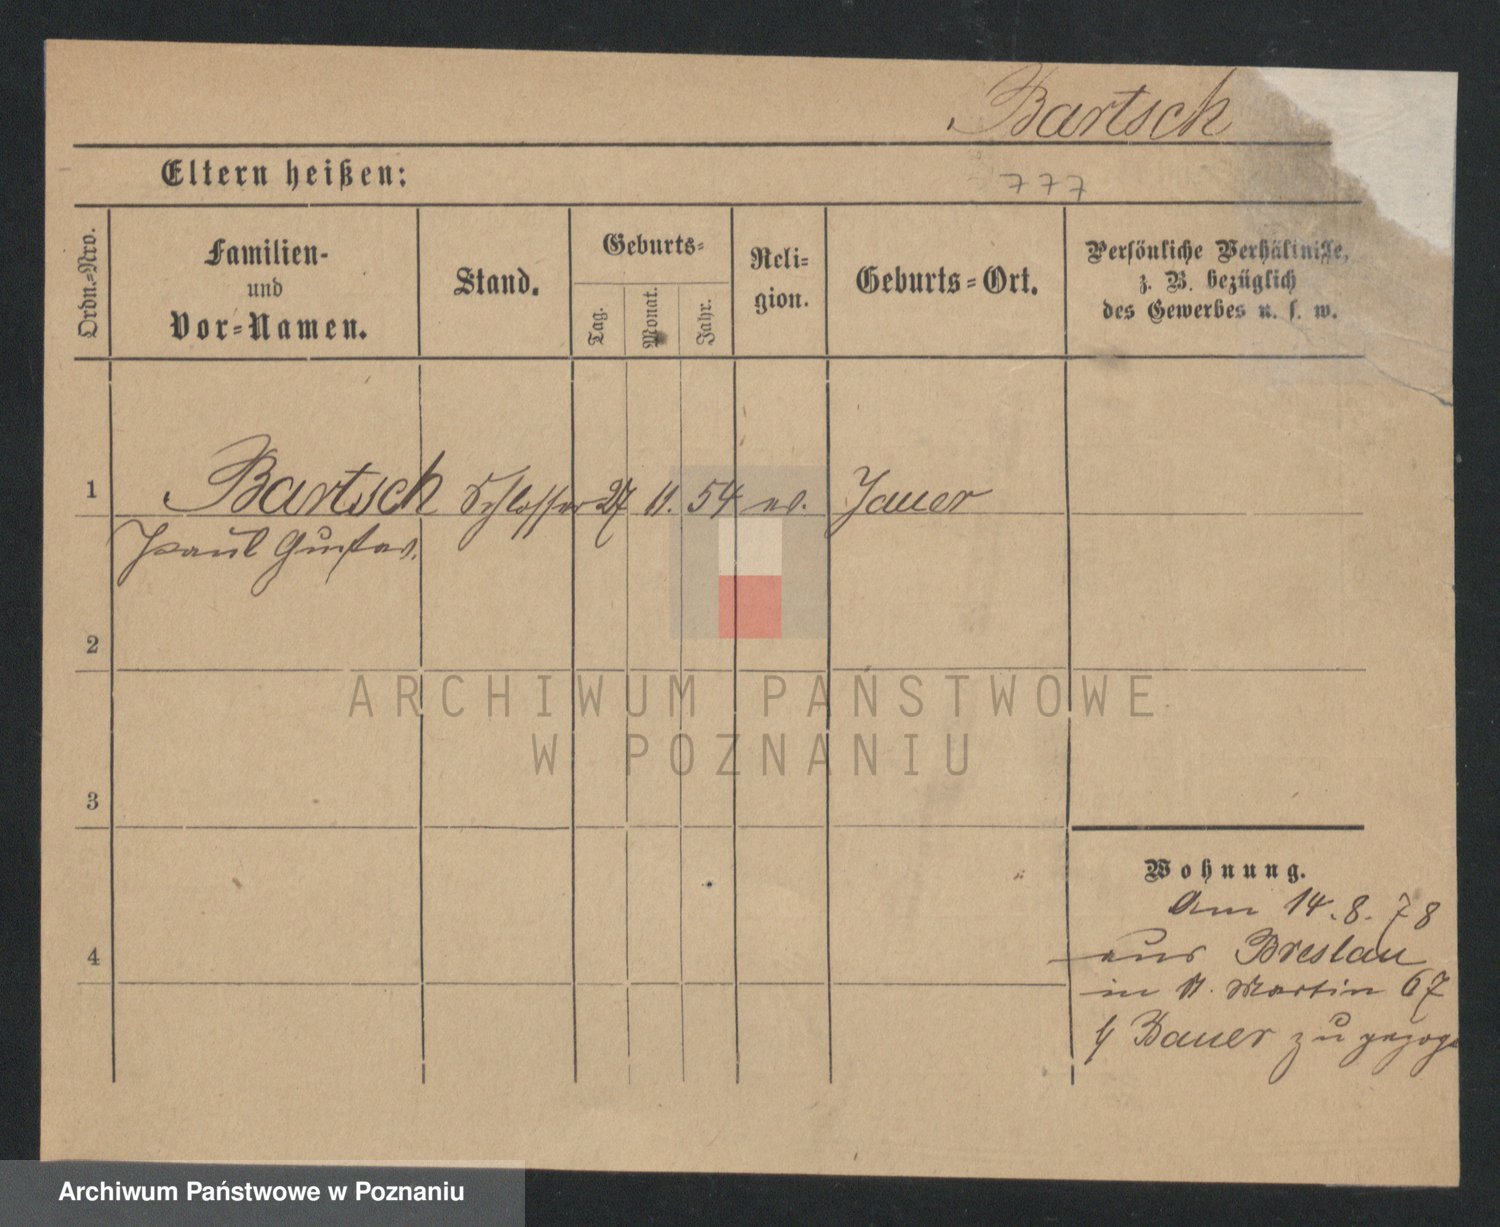 Bartsch
Eltern heißen:
777
Ordn.=Nro.
Familien-
und
Vor=Namen.
Stand.
Geburts=
Tag.
Monat.
Jahr.
Reli=
gion.
Geburts=Ort.
Persönliche Verhältnisse,
z. B. bezüglich
des Gewerbes u. s. w.
1 Bartsch Schlosser 27 11. 54 ev. Jauer
Paul Gustav.
2
ARCHIWUM PAŃSTWOWE
W POZNANIU
3
Wohnung.
Am 14. 8. 78
aus Breslau
4
in St. Martin 67
Bauer zu gezoge
Archiwum Państwowe w Poznaniu